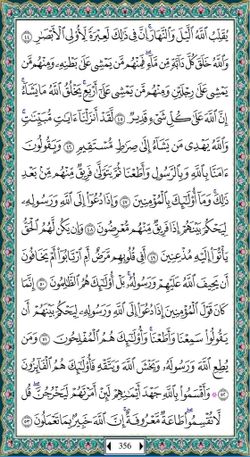 يُقَلِّبُ ٱللَّهُ ٱلَّيْلَ وَٱلنَّهَارَ إِنَّ فِى ذَٰلِكَ لَعِبْرَةً لِّأُو۟لِى ٱلْأَبْصَٰرِ ٤٤
وَٱللَّهُ خَلَقَ كُلَّ دَآبَّةٍ مِّن مَّآءٍ فَمِنْهُم مَّن يَمْشِى عَلَىٰ بَطْنِهِۦ وَمِنْهُم مَّن
يَمْشِى عَلَىٰ رِجْلَيْنِ وَمِنْهُم مَّن يَمْشِى عَلَىٰٓ أَرْبَعٍ يَخْلُقُ ٱللَّهُ مَا يَشَآءُ
إِنَّ ٱللَّهَ عَلَىٰ كُلِّ شَىْءٍ قَدِيرٌ ٤٥ لَّقَدْ أَنزَلْنَآ ءَايَٰتٍ مُّبَيِّنَٰتٍ
وَٱللَّهُ يَهْدِى مَن يَشَآءُ إِلَىٰ صِرَٰطٍ مُّسْتَقِيمٍ ٤٦ وَيَقُولُونَ
ءَامَنَّا بِٱللَّهِ وَبِٱلرَّسُولِ وَأَطَعْنَا ثُمَّ يَتَوَلَّىٰ فَرِيقٌ مِّنْهُم مِّنۢ بَعْدِ
ذَٰلِكَ وَمَآ أُو۟لَٰٓئِكَ بِٱلْمُؤْمِنِينَ ٤٧ وَإِذَا دُعُوٓا۟ إِلَى ٱللَّهِ وَرَسُولِهِۦ
لِيَحْكُمَ بَيْنَهُمْ إِذَا فَرِيقٌ مِّنْهُم مُّعْرِضُونَ ٤٨ وَإِن يَكُن لَّهُمُ ٱلْحَقُّ
يَأْتُوٓا۟ إِلَيْهِ مُذْعِنِينَ ٤٩ أَفِى قُلُوبِهِم مَّرَضٌ أَمِ ٱرْتَابُوٓا۟ أَمْ يَخَافُونَ
أَن يَحِيفَ ٱللَّهُ عَلَيْهِمْ وَرَسُولُهُۥ بَلْ أُو۟لَٰٓئِكَ هُمُ ٱلظَّٰلِمُونَ ٥٠ إِنَّمَا
كَانَ قَوْلَ ٱلْمُؤْمِنِينَ إِذَا دُعُوٓا۟ إِلَى ٱللَّهِ وَرَسُولِهِۦ لِيَحْكُمَ بَيْنَهُمْ أَن
يَقُولُوا۟ سَمِعْنَا وَأَطَعْنَا وَأُو۟لَٰٓئِكَ هُمُ ٱلْمُفْلِحُونَ ٥١ وَمَن
يُطِعِ ٱللَّهَ وَرَسُولَهُۥ وَيَخْشَ ٱللَّهَ وَيَتَّقْهِ فَأُو۟لَٰٓئِكَ هُمُ ٱلْفَآئِزُونَ
٥٢ وَأَقْسَمُوا۟ بِٱللَّهِ جَهْدَ أَيْمَٰنِهِمْ لَئِنْ أَمَرْتَهُمْ لَيَخْرُجُنَّ قُل
لَّا تُقْسِمُوا۟ طَاعَةٌ مَّعْرُوفَةٌ إِنَّ ٱللَّهَ خَبِيرٌۢ بِمَا تَعْمَلُونَ ٥٣
356